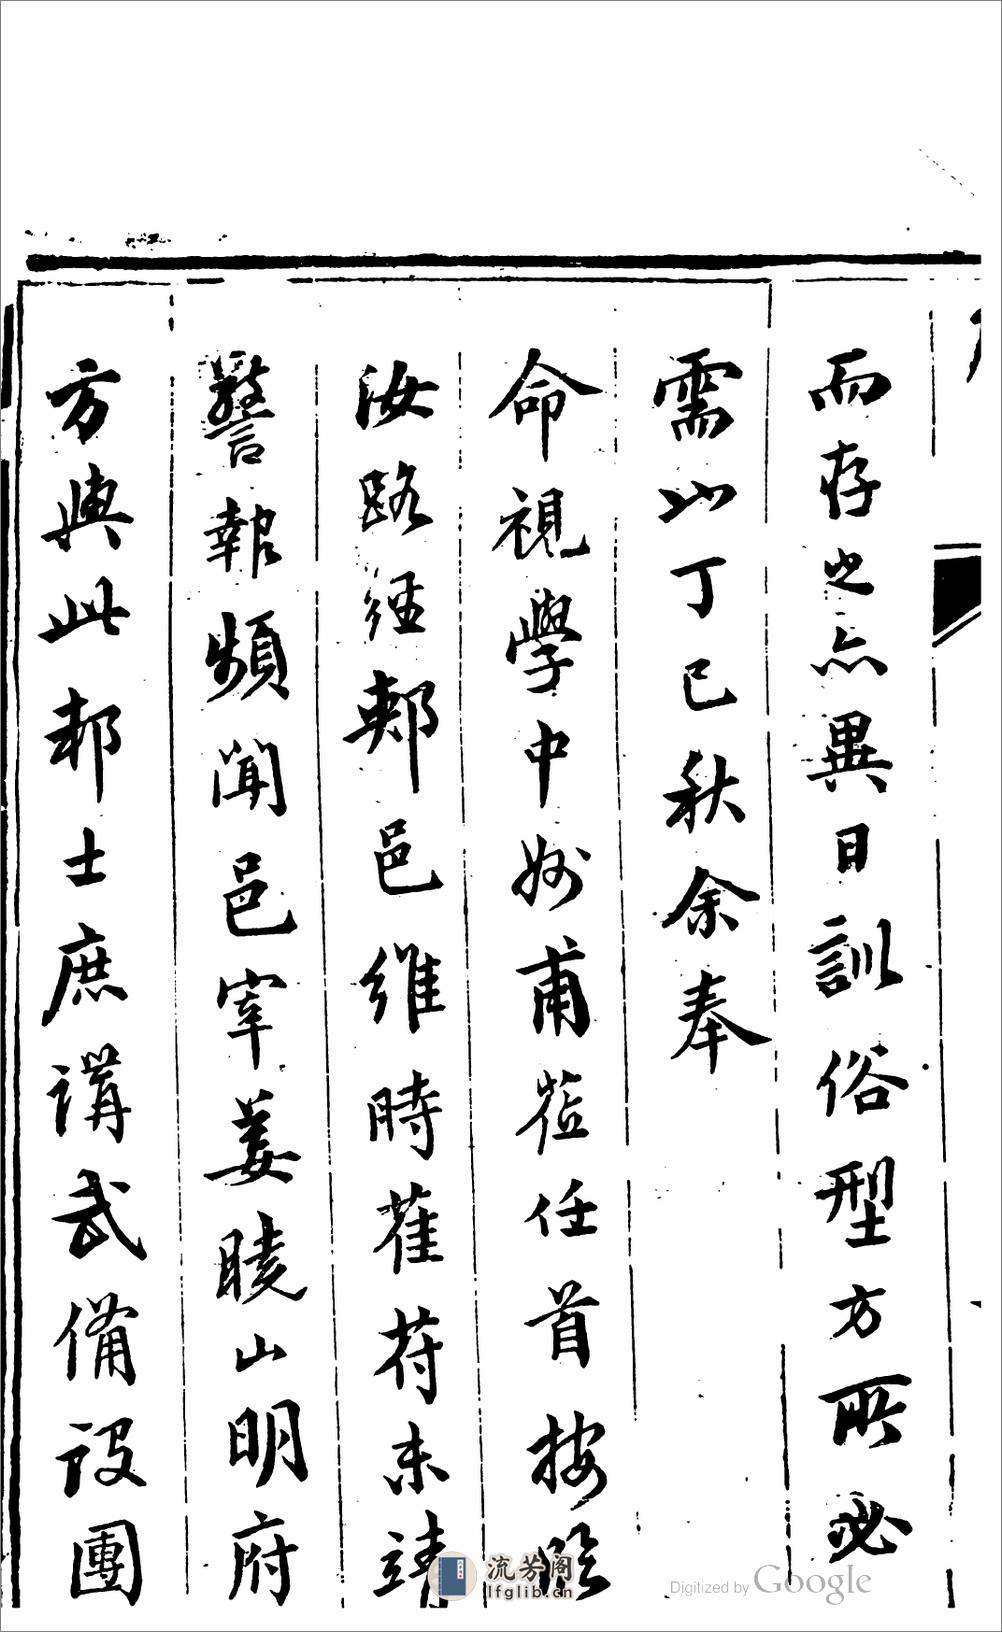 而存之亦異日訓俗型方所必
需也丁巳秋余奉
命視學中州甫莅任首按臨
汝路經郟邑維時萑苻未靖
警報頻聞邑宰姜睖山明府
方與此邦士庶講武備設團
流芳阁
lfglib.cn
Digitized by Google